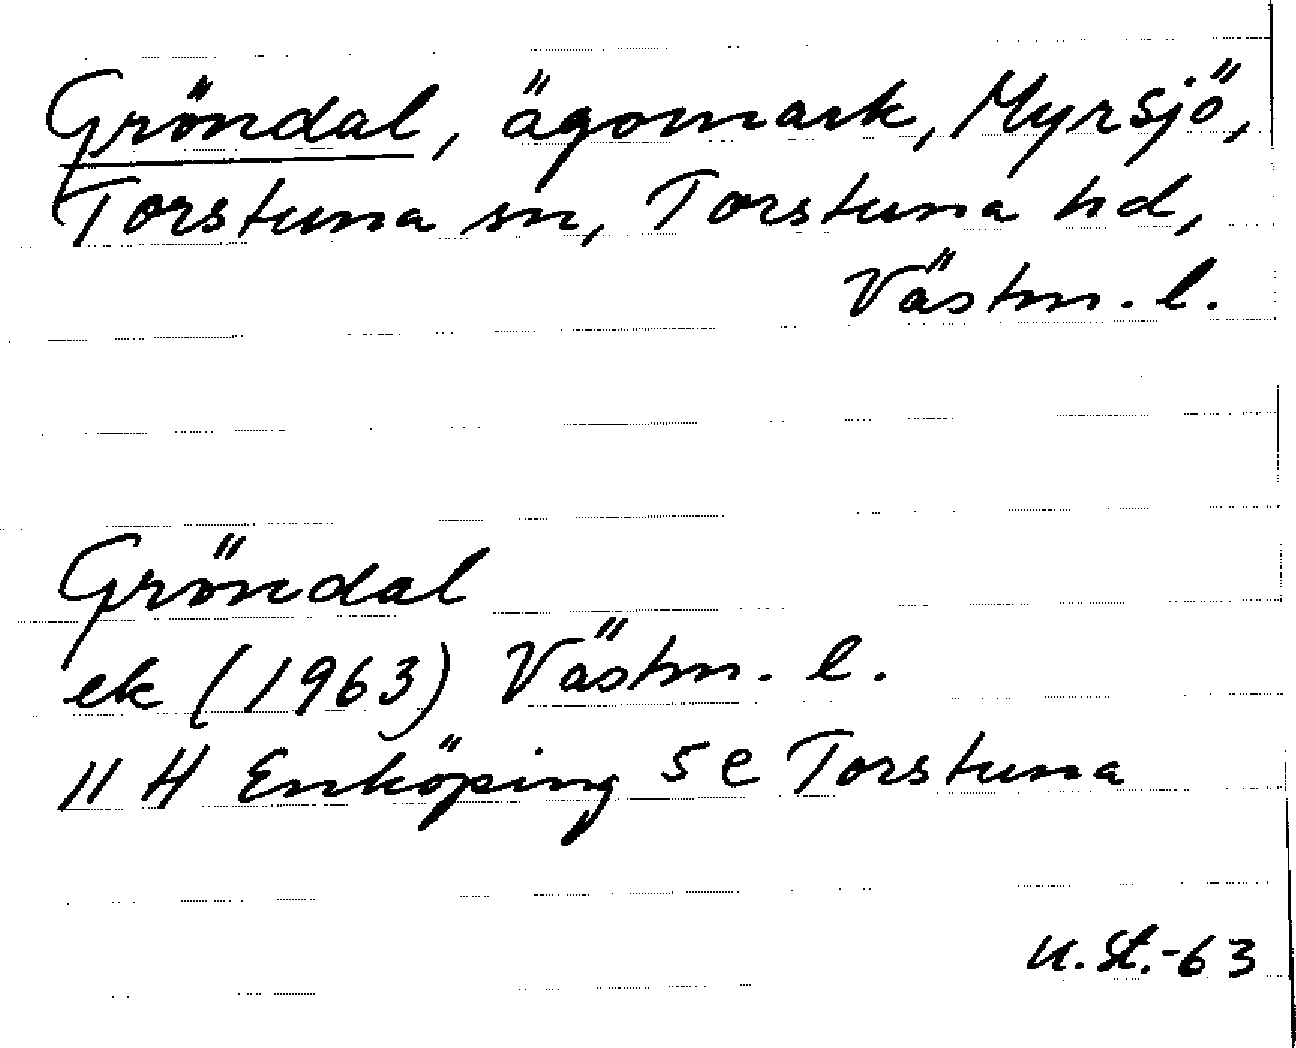 Gröndal, ägomark, Myrsjö,
Torstuna sn, Torstuna hd,
Västm. l.
Gröndal
ek (1963) Västm. l.
11 H Enköping 5 e Torstuna
U. St.-63